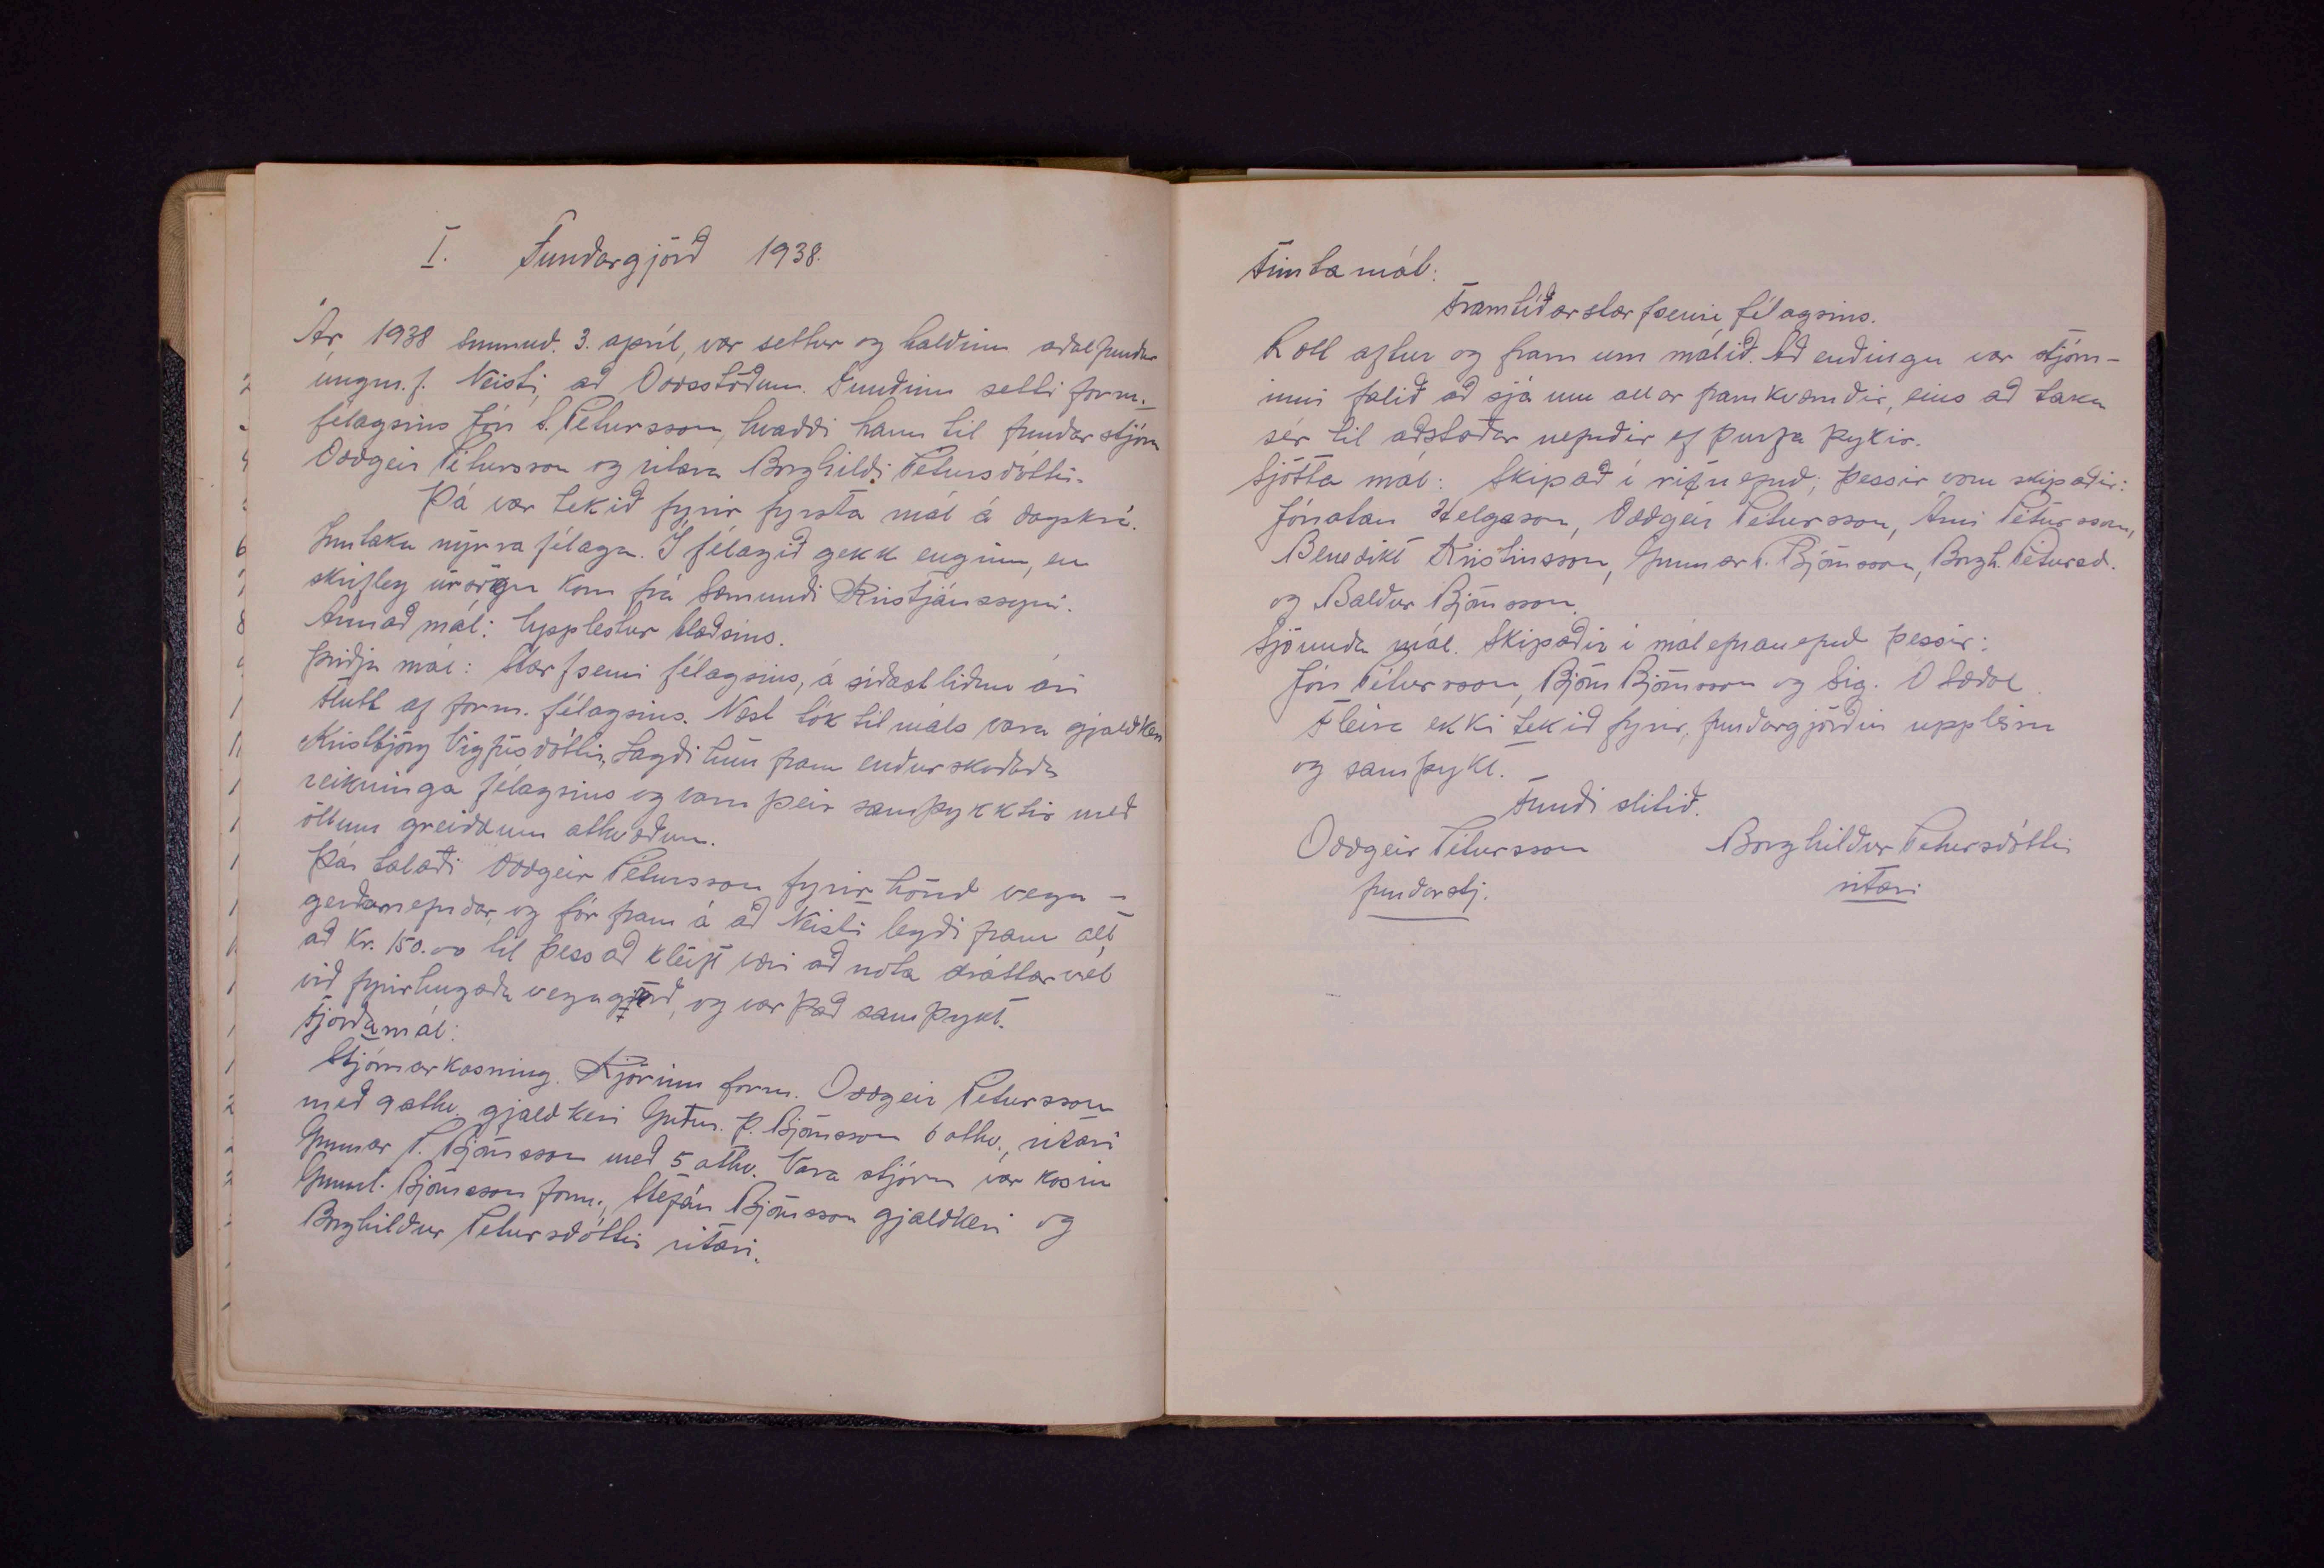 I. Fundargjörð 1938.
Ár 1938 sunnud. 3. apríl, var settur og haldinn aðalfundur
ungm.f. Neisti, að Oddsstöðum. Fundinn setti form.
félagsins Jón S. Pétursson, kvaddi hann til fundarstjóra
Oddgeir Pétursson og ritara Borghildi Pétursdóttir.
Þá var tekið fyrir fyrsta mál á dagskrá.
Inntaka nýrra félaga. Í félagið gekk enginn, en
skrifleg úrsögn kom frá Sæmundi Kristjánssyni.
Annað mál: Upplestur blaðsins.
Þriðja mál: Starfsemi félagsins, á síðastliðnu ári
flutt af form. félagsins. Næst tók til máls vara gjaldkeri
Kristbjörg Vigfúsdóttir, Lagði hún fram endurskoðaða
reikninga félagsins og voru þeir samþykktir með
öllum greiddum atkvæðum.
Þá talaði Oddgeir Pétursson fyrir hönd vega-
gerðarnefndar, og fór fram á að Neisti legði fram allt
að Kr. 150.00 til þess að kleift væri að nota dráttarvél
við fyrirhugaða vegagjörð, og var það samþykt.
Fjórða mál:
Stjórnarkosning. Kjörinn form. Oddgeir Pétursson
með 9 atkv. gjaldkeri Guðm. Þ. Björnsson 6 atkv., ritari
Gunnar Þ. Björnsson með 5 atkv. Vara stjórn var kosin
Gunnl. Björnsson form., Stefán Björnsson gjaldkeri og
Borghildur Pétursdóttir ritari.
Fimta mál:
Framtíðarstarfsemi félagsins.
Rætt aftur og fram um málið. Að endingu var stjórn-
inni falið að sjá um allar framkvæmdir, eins að taka
sér til aðstoðar nefndir ef þurfa þykir.
Sjötta mál: Skipað í ritnefnd; þessir voru skipaðir:
Jónatan Helgason, Oddgeir Pétursson, Árni Pétursson,
Benedikt Kristinsson, Gunnar Þ. Björnsson, Borgh. Pétursd.
og Baldur Björnsson.
Sjöunda mál. Skipaðir í málefnanefnd þessir:
Jón Pétursson, Björn Björnsson og Sig.
Fleira ekki tekið fyrir, fundargjörðin upplesin
og samþykt.
Fundi slitið.
Oddgeir Pétursson Borghildur Pétursdóttir
fundarstj. ritari